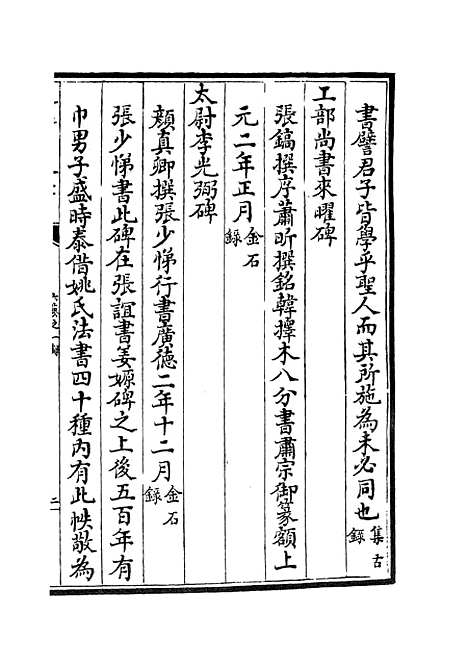 書譬君子皆學乎聖人而其所施為未必同也集古
錄
工部尚書來曜碑
張鎬撰序蕭昕撰銘韓擇木八分書肅宗御篆額上
元二年正月金石
錄
太尉李光弼碑
顏真卿撰張少悌行書廣德二年十二月金石
錄
張少悌書此碑在張誼書姜嫄碑之上後五百年有
巾男子盛時泰借姚氏法書四十種內有此帙敬為